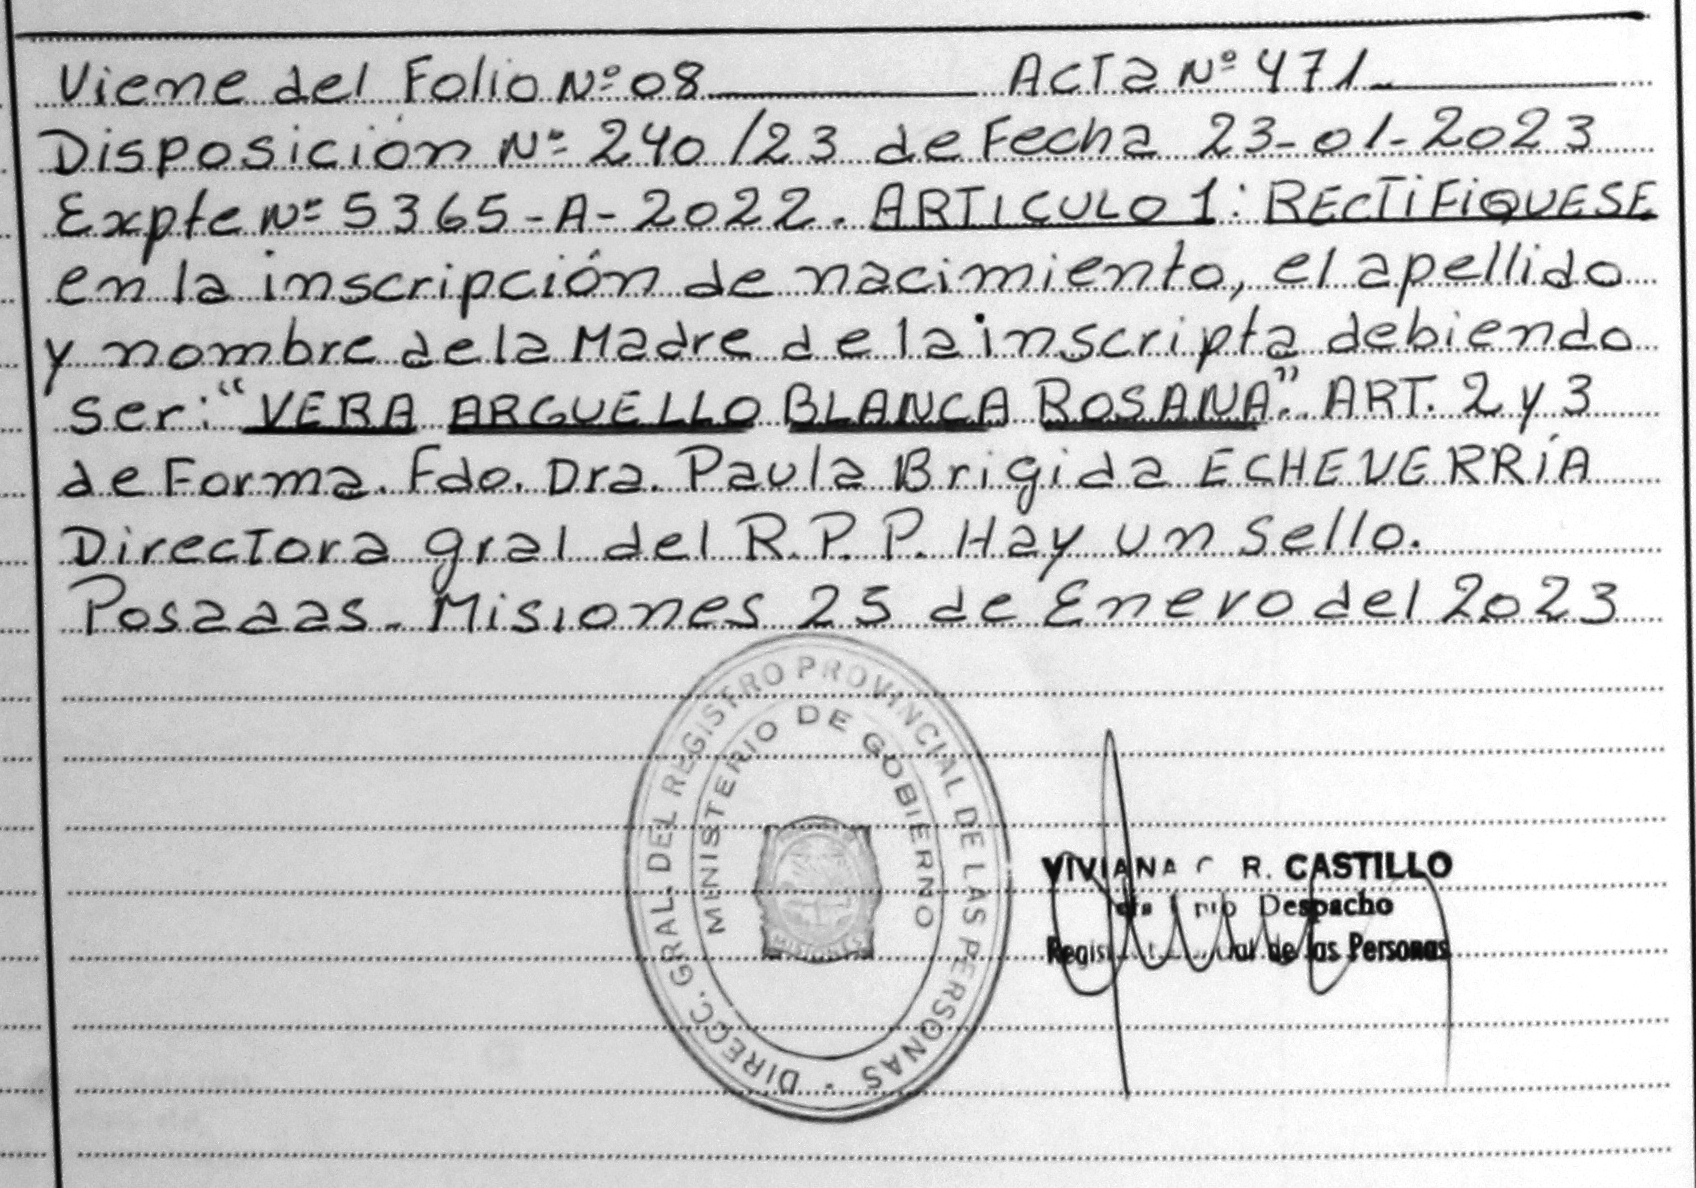 Viene del Folio Nº 08 Acta Nº 471
Disposición Nº 240/23 de Fecha 23-01-2023
Expte Nº 5365-A-2022. ARTICULO 1: RECTIFIQUESE
en la inscripción de nacimiento, el apellido
y nombre de la Madre de la inscripta debiendo
ser: "VERA ARGUELLO BLANCA ROSANA". ART. 2 y 3
de Forma. Fdo. Dra. Paula Brigida ECHEVERRÍA
Directora gral del R.P.P. Hay un Sello.
Posadas. Misiones 25 de Enero del 2023
DIRECC. GRAL. DEL REGISTRO PROVINCIAL DE LAS PERSONAS
MINISTERIO DE GOBIERNO
MISIONES
VIVIANA R. CASTILLO
Despacho
de las Personas